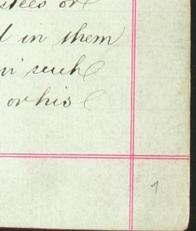 stees or
d in them
in such
or his
1